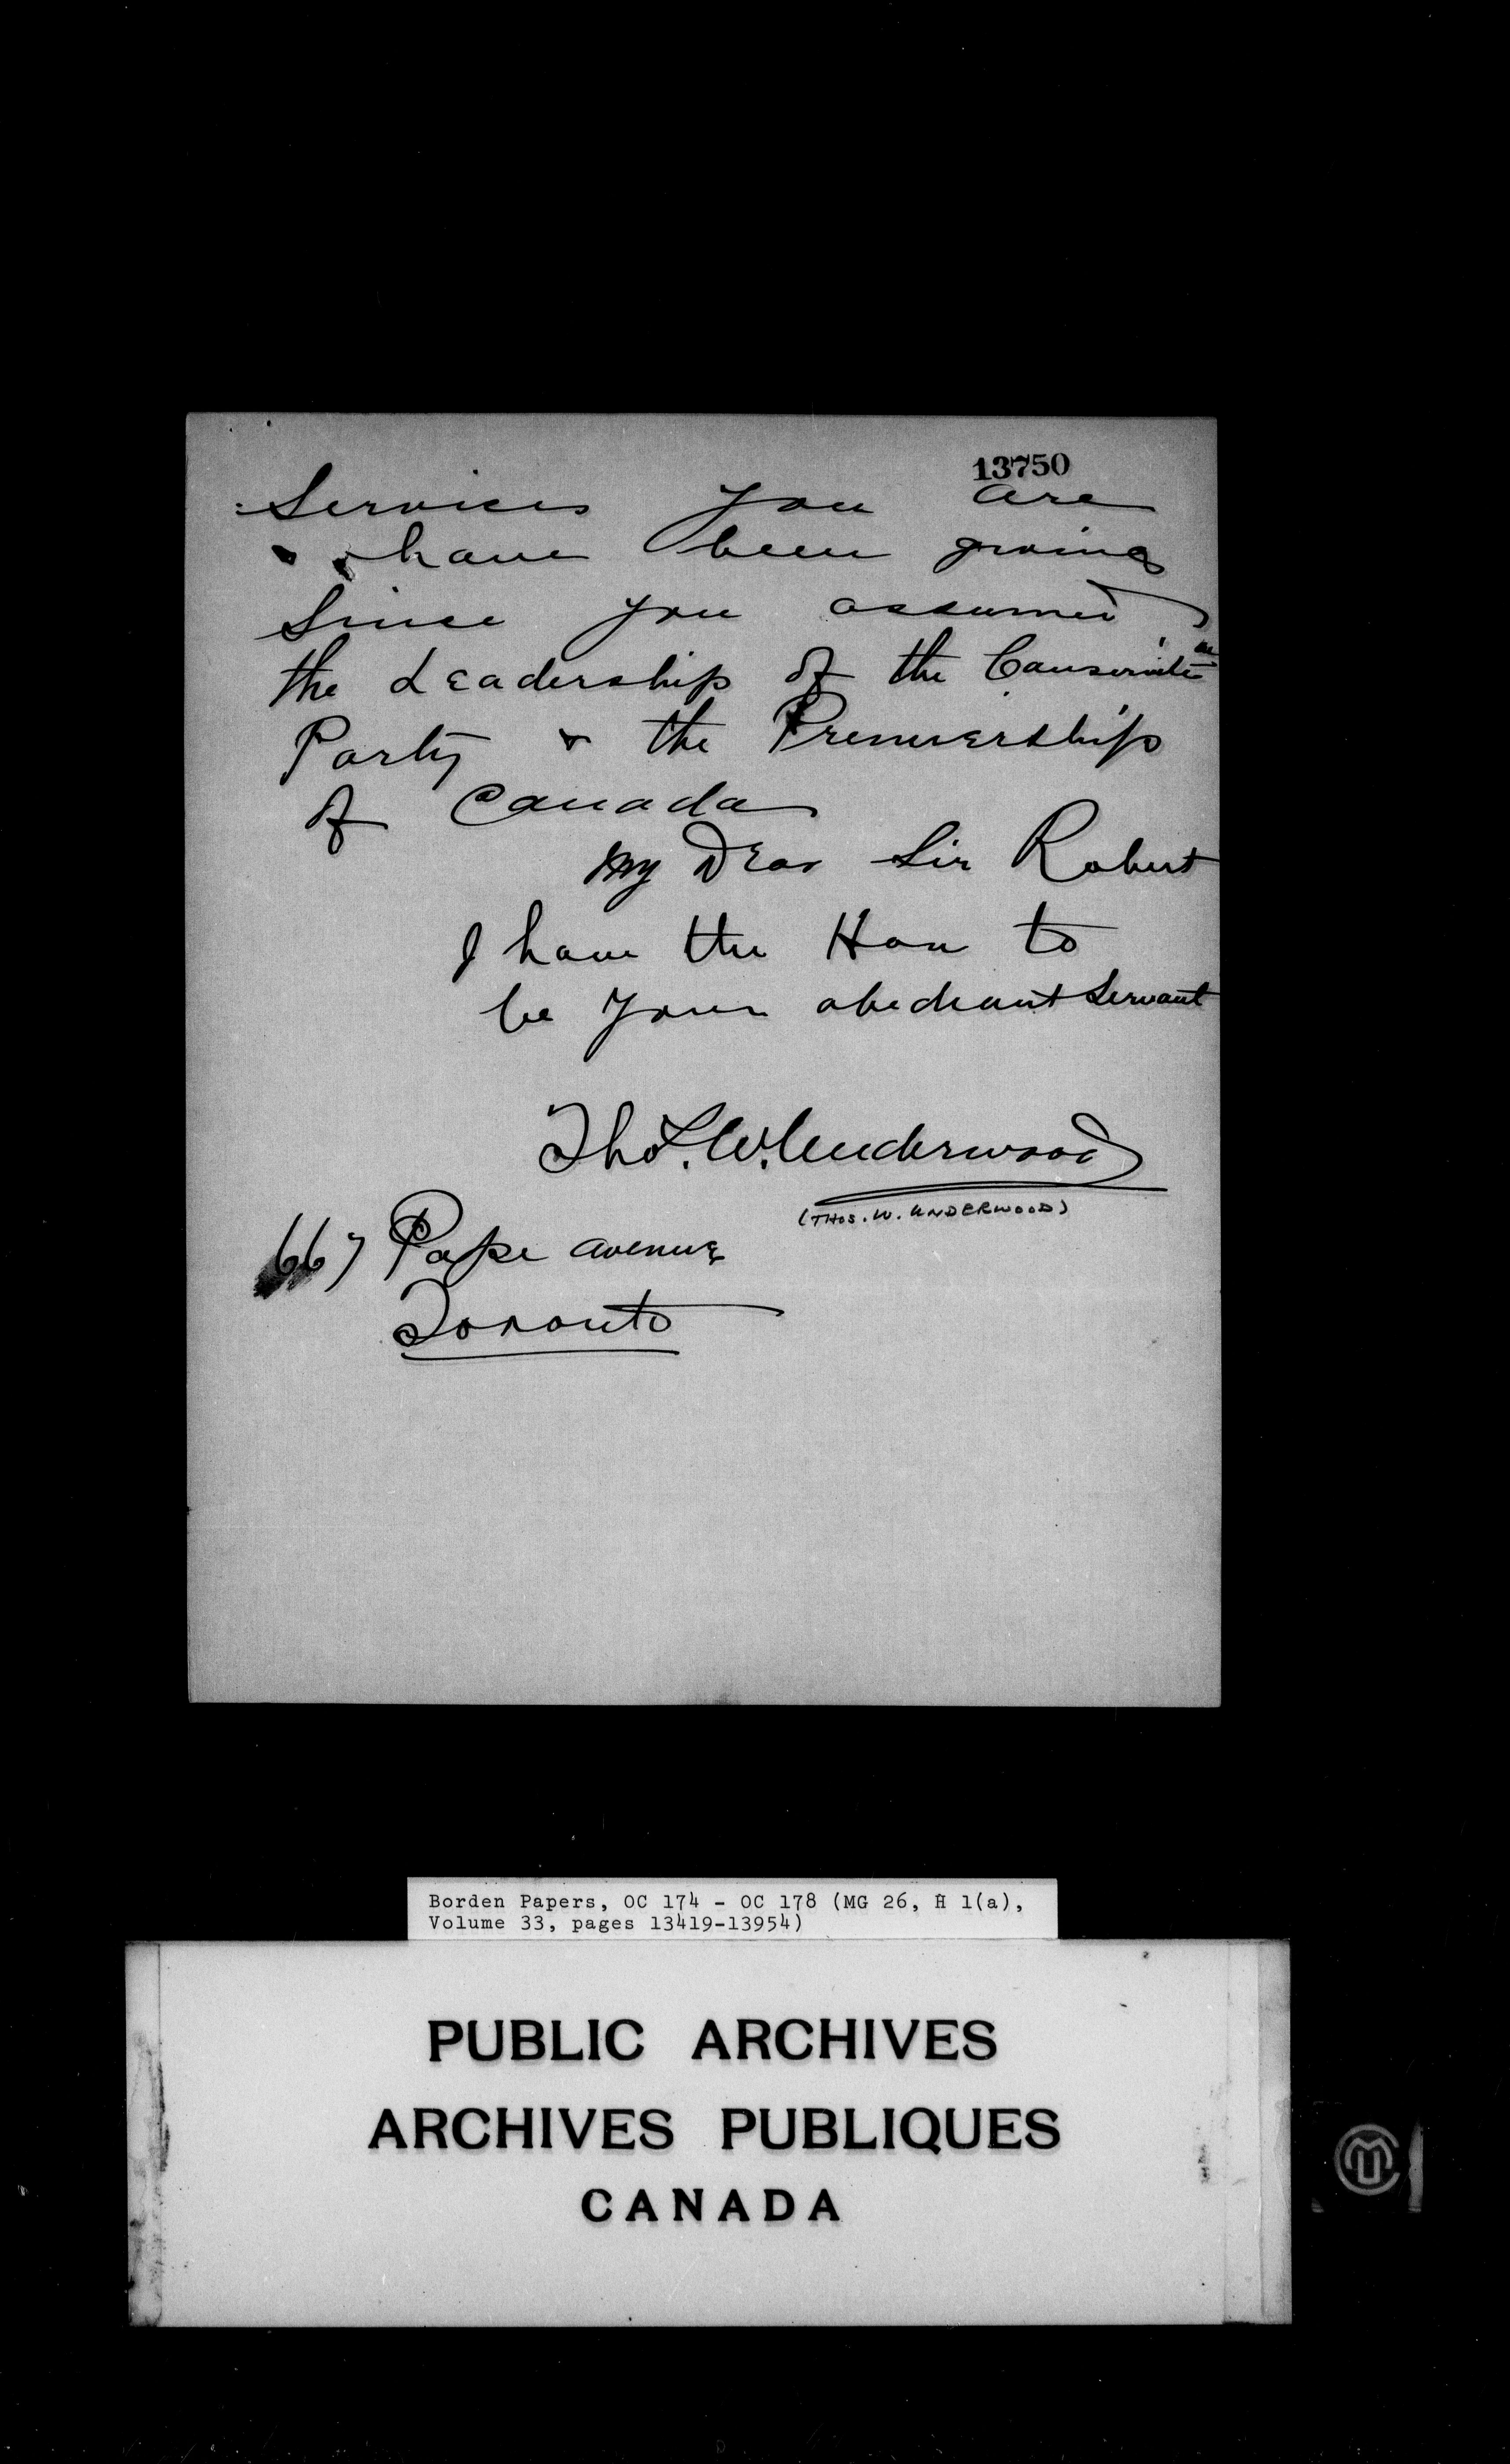 13750
Services you are
& have been giving
Since you assumed
the Leadership of the Conservative
Party & the Premiership
of Canada
My Dear Sir Robert
I have the Hon to
be your obediant Servant
Thos. W. Underwood
(THOS. W. UNDERWOOD)
667 Pape avenue
Toronto
Borden Papers, OC 174 - OC 178 (MG 26, H 1(a),
Volume 33, pages 13419-13954)
PUBLIC ARCHIVES
ARCHIVES PUBLIQUES
CANADA